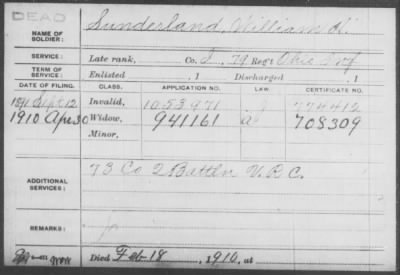 DEAD
NAME OF SOLDIER: Sunderland, William H.
SERVICE: Late rank, Co. I, 79 Reg't Ohio Inf
TERM OF SERVICE: Enlisted , 1 Discharged , 1
DATE OF FILING. CLASS. APPLICATION NO. LAW. CERTIFICATE NO.
1891 Sept 12 Invalid, 1053971 J 774412
1910 Apr 30 Widow, 941161 708309
Minor,
ADDITIONAL SERVICES: 73 Co 2 Battln V.R.C.
REMARKS:
Died Feb 18, 1910, at